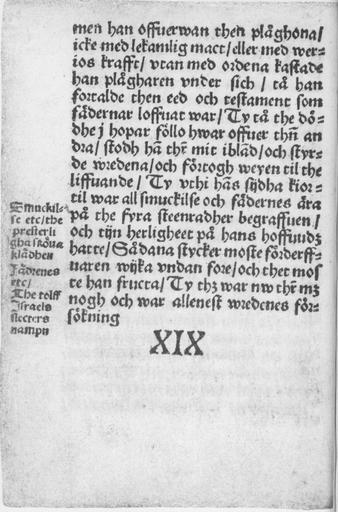 men han offuerwan then plåghona/
icke med lekamlig mact/eller med wer⸗
ios krafft/ vtan med ordena kastade
han plågharen vnder sich/ tå han
fortalde then eed och testament som
fådernar loffuat war/ Ty tå the dö⸗
dhe j hopar föllo hwar offuer thñ an
dra/stodh hã thr̃ mit iblãd/och styr⸗
de wredena/och förtogh weyen til the
liffuande/ Ty vthi hãs sijdha kior⸗
til war all smuckilse och fådernes åra
på the fyra steenradher begraffuen/
och tijn herligheet på hans hoffuudz
hatte/Sådana stycker moste förderff⸗
naren wijka vndan fore/och thet mos
te han fructa/Ty thz war nw thr̃ mz
nogh och war allenest wredenes för⸗
sökning
Smuckil⸗
se etc/the
presterli
gha sköna
klådhen
Fådrenes
etc/
The tolff
Israels
slecters
nampn
XIX